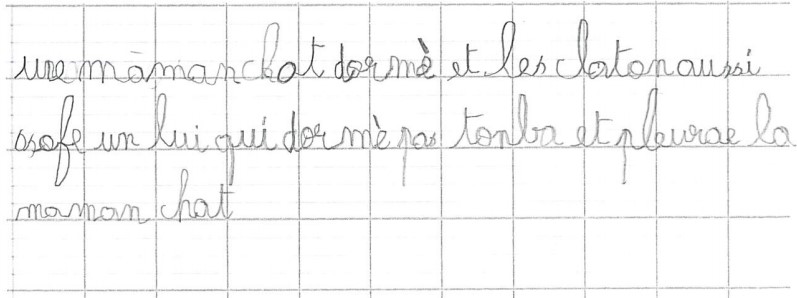 une maman chat dormè et les chaton aussi
osofe un lui qui dormè pas tonba et pleurae la
maman chat